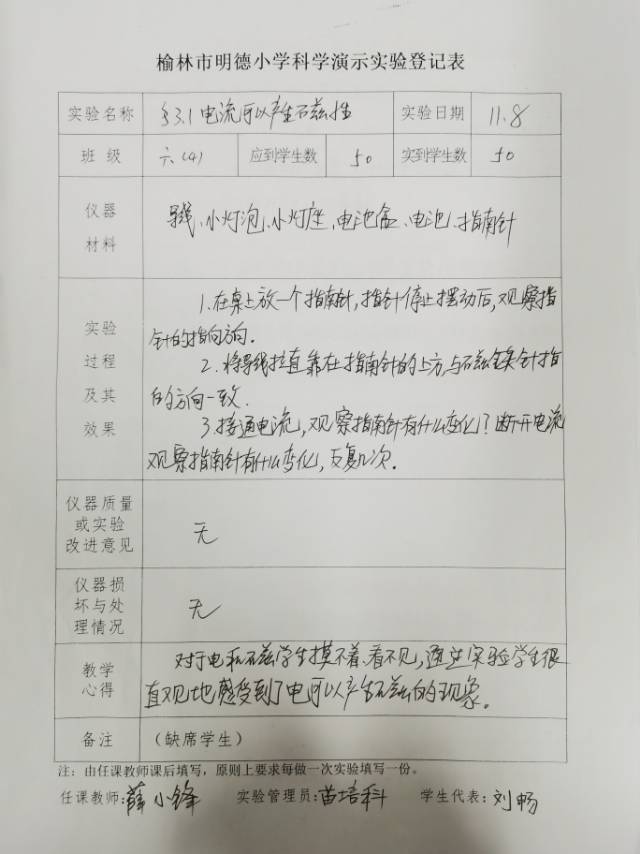 榆林市明德小学科学演示实验登记表
实验名称 §3.1 电流可以产生磁性 实验日期 11.8
班 级 六(4) 应到学生数 50 实到学生数 50
仪器
材料
导线、小灯泡、小灯座、电池盒、电池、指南针
实验
过程
及其
效果
1.在桌上放一个指南针,指针停止摆动后,观察指
针的指向方向.
2.将导线拉直靠在指南针的上方与磁针指
的方向一致.
3.接通电流,观察指南针有什么变化?断开电流
观察指南针有什么变化,反复几次.
仪器质量
或实验
改进意见
无
仪器损
坏与处
理情况
无
教学
心得
对于电和磁学生摸不着、看不见,通过实验学生很
直观地感受到了电可以产生磁的现象。
备注 (缺席学生)
注:由任课教师课后填写,原则上要求每做一次实验填写一份。
任课教师:薛小锋 实验管理员:苗培科 学生代表:刘畅